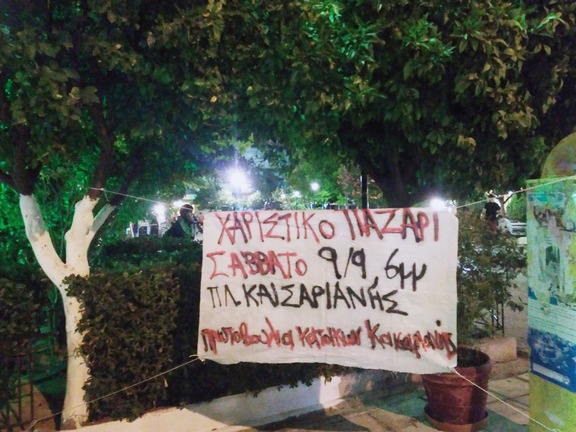 ΧΑΡΙΣΤΙΚΟ ΠΑΖΑΡΙ
ΣΑΒΒΑΤΟ 9/9 6μμ
ΠΛ. ΚΑΙΣΑΡΙΑΝΗΣ
πρωτοβουλια κατοικων Καισαριανής